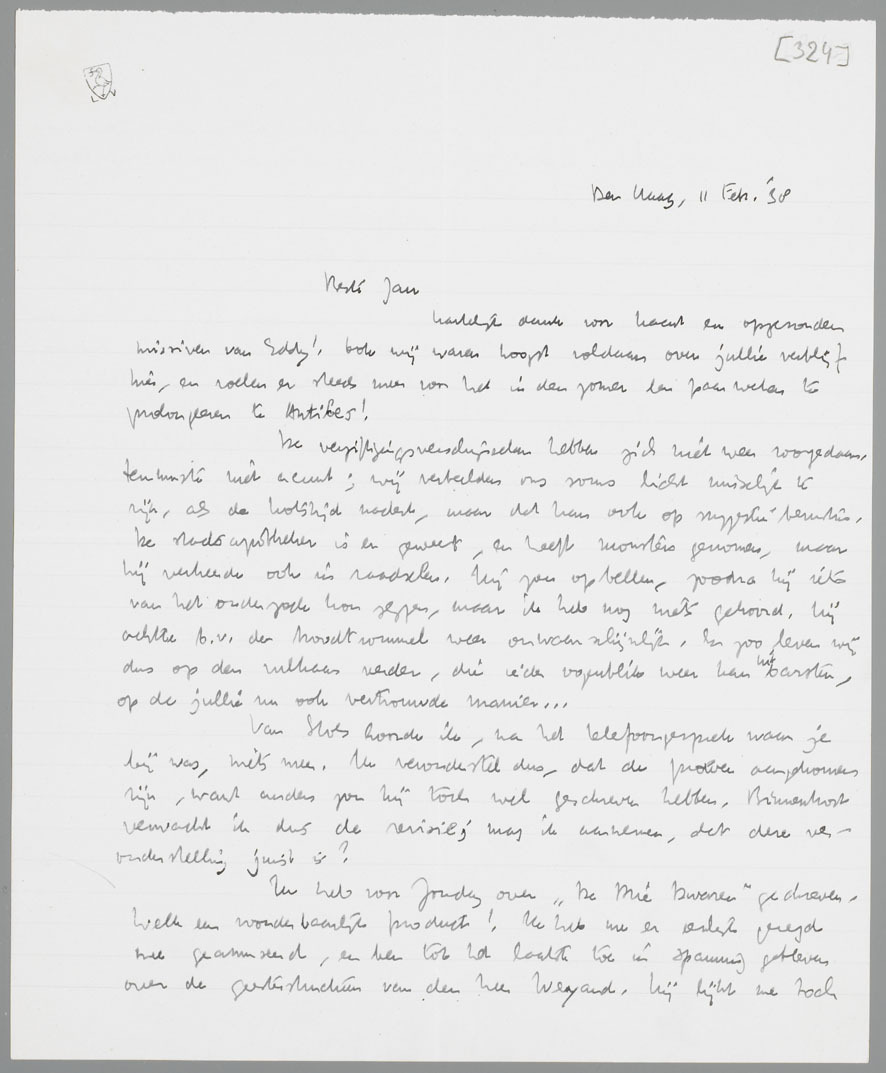 [324]
Den Haag, 11 Febr. '38
Beste Jan
hartelijk dank voor kaart en opgezonden
missiven van Eddy! Ook wij waren hoogst voldaan over jullie verblijf
hier, en voelen er steeds meer voor het in den zomer een paar weken te
prolongeren te Antibes!
De vergiftigingsverschijnselen hebben zich niet weer voorgedaan,
tenminste niet acuut; wij verbeelden ons soms licht misselijk te
zijn, als de maaltijd nadert, maar dat kan ook op suggestie berusten.
De stadsapotheker is er geweest, en heeft monsters genomen, maar
hij verkeerde ook in raadselen. Hij zou opbellen, zoodra hij iets
van het onderzoek kon zeggen, maar ik heb nog niets gehoord. Hij
achtte b.v. den broodtrommel weer onwaarschijnlijk. En zoo leven wij
dus op den vulkaan verder, die ieder oogenblik weer kan uitbarsten,
op de jullie nu ook vertrouwde manier...
Van Stols hoorde ik, na het telefoongesprek waar je
bij was, niets meer. Ik veronderstel dus, dat de proeven aangekomen
zijn, want anders zou hij toch wel geschreven hebben. Binnenkort
verwacht ik dus de revisie; mag ik aannemen, dat deze ver-
onderstelling juist is?
Ik heb voor Zondag over "De Drie Dwazen" geschreven.
Welk een wonderbaarlijk product! Ik heb me er eerlijk gezegd
mee geamuseerd, en ben tot het laatste toe in spanning gebleven
over de geestestructuur van den heer Weyand. Hij lijkt me toch